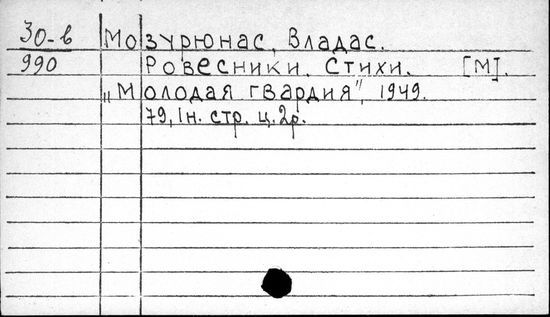 30-в Мозурюнас, Владас.
990 Ровесники. Стихи. [М].
„Молодая гвардия", 1949.
79, 1н. стр. ц. 2р.